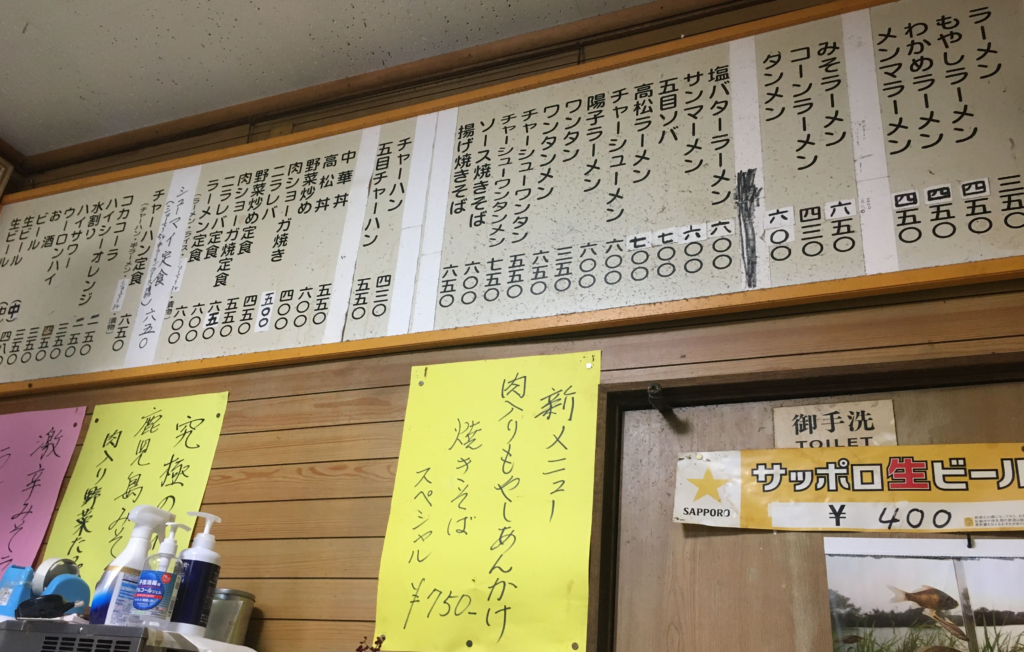 ラーメン 三五〇
もやしラーメン 四五〇
わかめラーメン 四五〇
メンマラーメン 四五〇
みそラーメン 六五〇
コーンラーメン 四三〇
タンメン 六〇〇
塩バターラーメン 六〇〇
サンマーメン 六〇〇
五目ソバ 七〇〇
高松ラーメン 七〇〇
チャーシューメン 六〇〇
陽子ラーメン 六〇〇
ワンタン 三五〇
ワンタンメン 六五〇
チャーシューワンタン 五五〇
チャーシューワンタンメン 七五〇
ソース焼きそば 六〇〇
揚げ焼きそば 六五〇
チャーハン 四三〇
五目チャーハン 五五〇
中華丼 五五〇
高松丼 六〇〇
野菜炒め 四〇〇
肉ショーガ焼き 五〇〇
ニラレバ 四五〇
野菜炒め定食 五五〇
肉ショーガ焼定食 六五〇
ニラレバ定食 六〇〇
ラーメン定食 六〇〇
シューマイ定食 六五〇
チャーハン定食 六五〇
コカコーラ
ハイシーオレンジ
水割り
ハイサワー
ウーロンハイ
お酒
ビール
生ビール
生ビール
新メニュー
肉入りもやしあんかけ
焼きそば
スペシャル ¥750-
究極の
鹿児島みそ
肉入り野菜た
激辛みそラ
御手洗
TOILET
サッポロ生ビール
SAPPORO
¥ 400